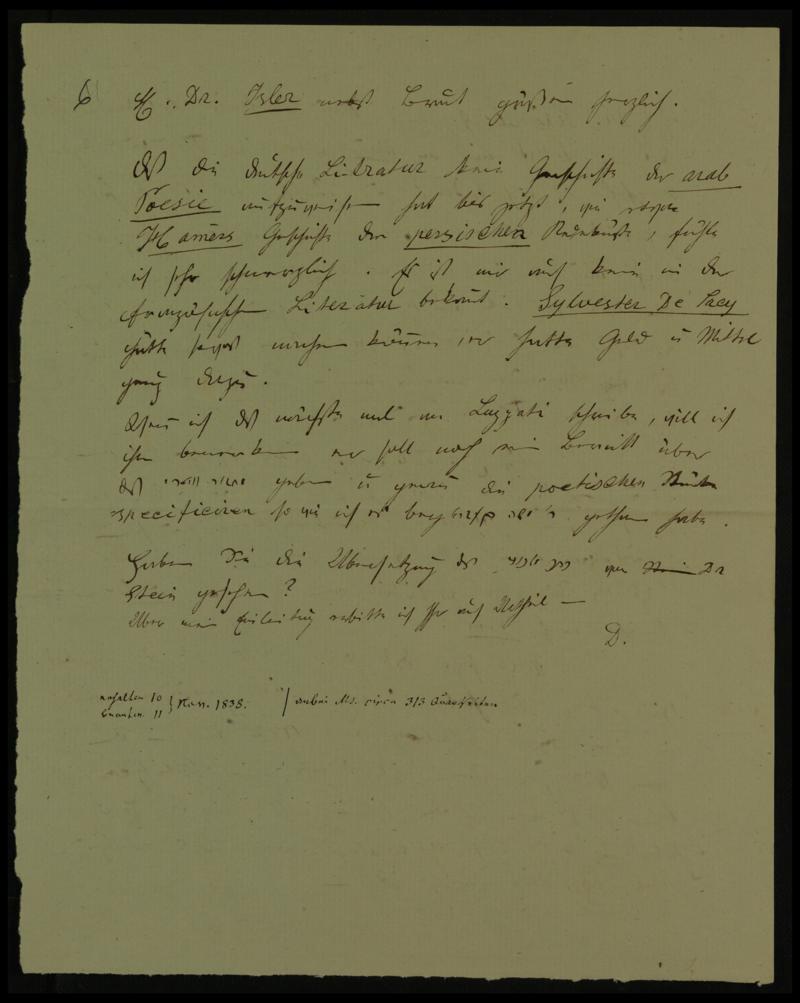 6
H. Dr. Isler nebst Braut grüßen herzlich.
Daß die deutsche Literatur keine Geschichte der arab
Poesie aufzuweisen hat bis jetzt, wie etwa
Hamers Geschichte der persischen Redekünste, fühle
ich sehr schmerzlich. Es ist mir auch keine in der
französischen Literatur bekannt. Sylvester De Sacy
hätte machen können, er hatte Geld u Mittel
genug dazu.
Wenn ich das nächste mal an Luzzato schreibe, will ich
ihm bemerken er soll noch ein Bericht über
das geben u genau die poetischen Stücke
specificiren so wie ich es bey gethan habe.
Haben Sie die Übersetzung des von Dr
Stein gesehen?
Über meine Einleitung erbitte ich Ihr Urtheil —
D.
erhalten 10
beantw. 11 } Nov. 1838. / anbei Ms. circa 313 Quartseiten